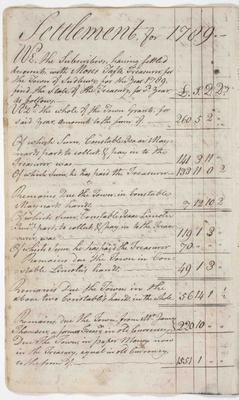 Settlement, for 1789.
We, the Subscribers, having settled
Accounts with Moses Treasurer for
the Town of Sudbury for the Year 1789,
find the State of the Treasury, for sd. Year
as follows. £ S D
Viz. the whole of the Town Grants, for
said Year, amounts to the Sum of 260 5 2
Of which Sum, Constable Isaac May-
nards part to collect & pay in to the
Treasury was 141 3 11
Of which Sum, he has paid the Treasurer 133 11 0
Remains due the Town, in Constable
Maynards hands 7 12 10
Of which Sum, Constable Lincoln
part, to collect & pay in to the Trea-
sury was 119 1 3
Of which Sum he has paid the Treasurer 70
Remains due the Town in Con-
stable Lincoln's hands 49 1 3
Remains Due the Town in the
above two Constable's hands in the whole 56 14 1
Remains due the Town, from Mr. James
Thomson a former Treasr. in old Currency 220 10
Due the Town in paper Money now
in the Treasury, equal in old Currency
to the Sum of 1551 1